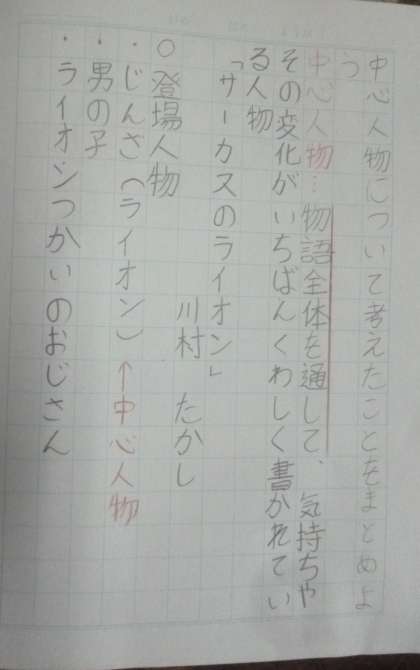 中心人物について考えたことをまとめよ
う
中心人物…物語全体を通して、気持ちや
その変化がいちばんくわしく書かれてい
る人物
「サーカスのライオン」
川村　たかし
○登場人物
・じんざ（ライオン）←中心人物
・男の子
・ライオンつかいのおじさん